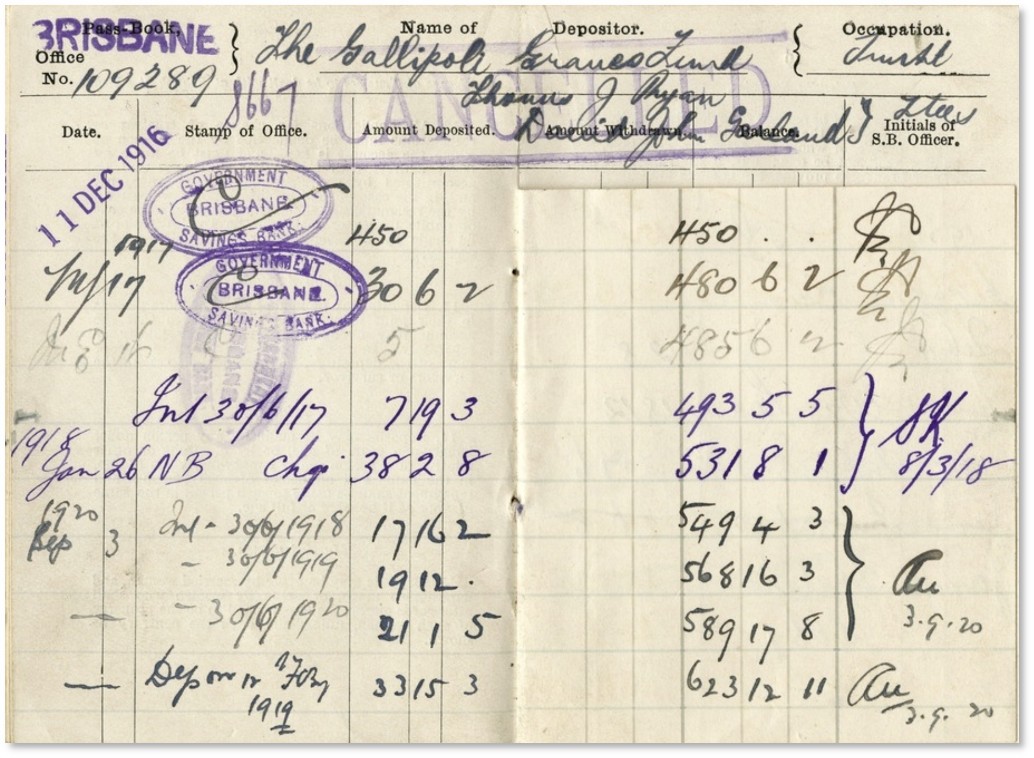 Pass-Book, Name of Depositor. Occupation.
BRISBANE
Office } The Gallipoli Graves Fund { Trustl
No. 109289
8667 Thomas J Ryan
CANCELLED
David John Garland } Ttees
Date. Stamp of Office. Amount Deposited. Amount Withdrawn. Balance. Initials of S.B. Officer.
11 DEC 1916
GOVERNMENT BRISBANE SAVINGS BANK. 450 450 . .
1917
17 GOVERNMENT BRISBANE SAVINGS BANK. 30 6 2 480 6 2
5 485 6 2
Int 30/6/17 7 19 3 493 5 5
1918
Jan 26 NB chq 38 2 8 531 8 1 8/3/18
1920
Sep 3 Int - 30/6/1918 17 16 2 549 4 3
- 30/6/1919 19 12 . 568 16 3
— - 30/6/1920 21 1 5 589 17 8 3.9.20
— Dep on 12 33 15 3 623 12 11
1919 3.9.20